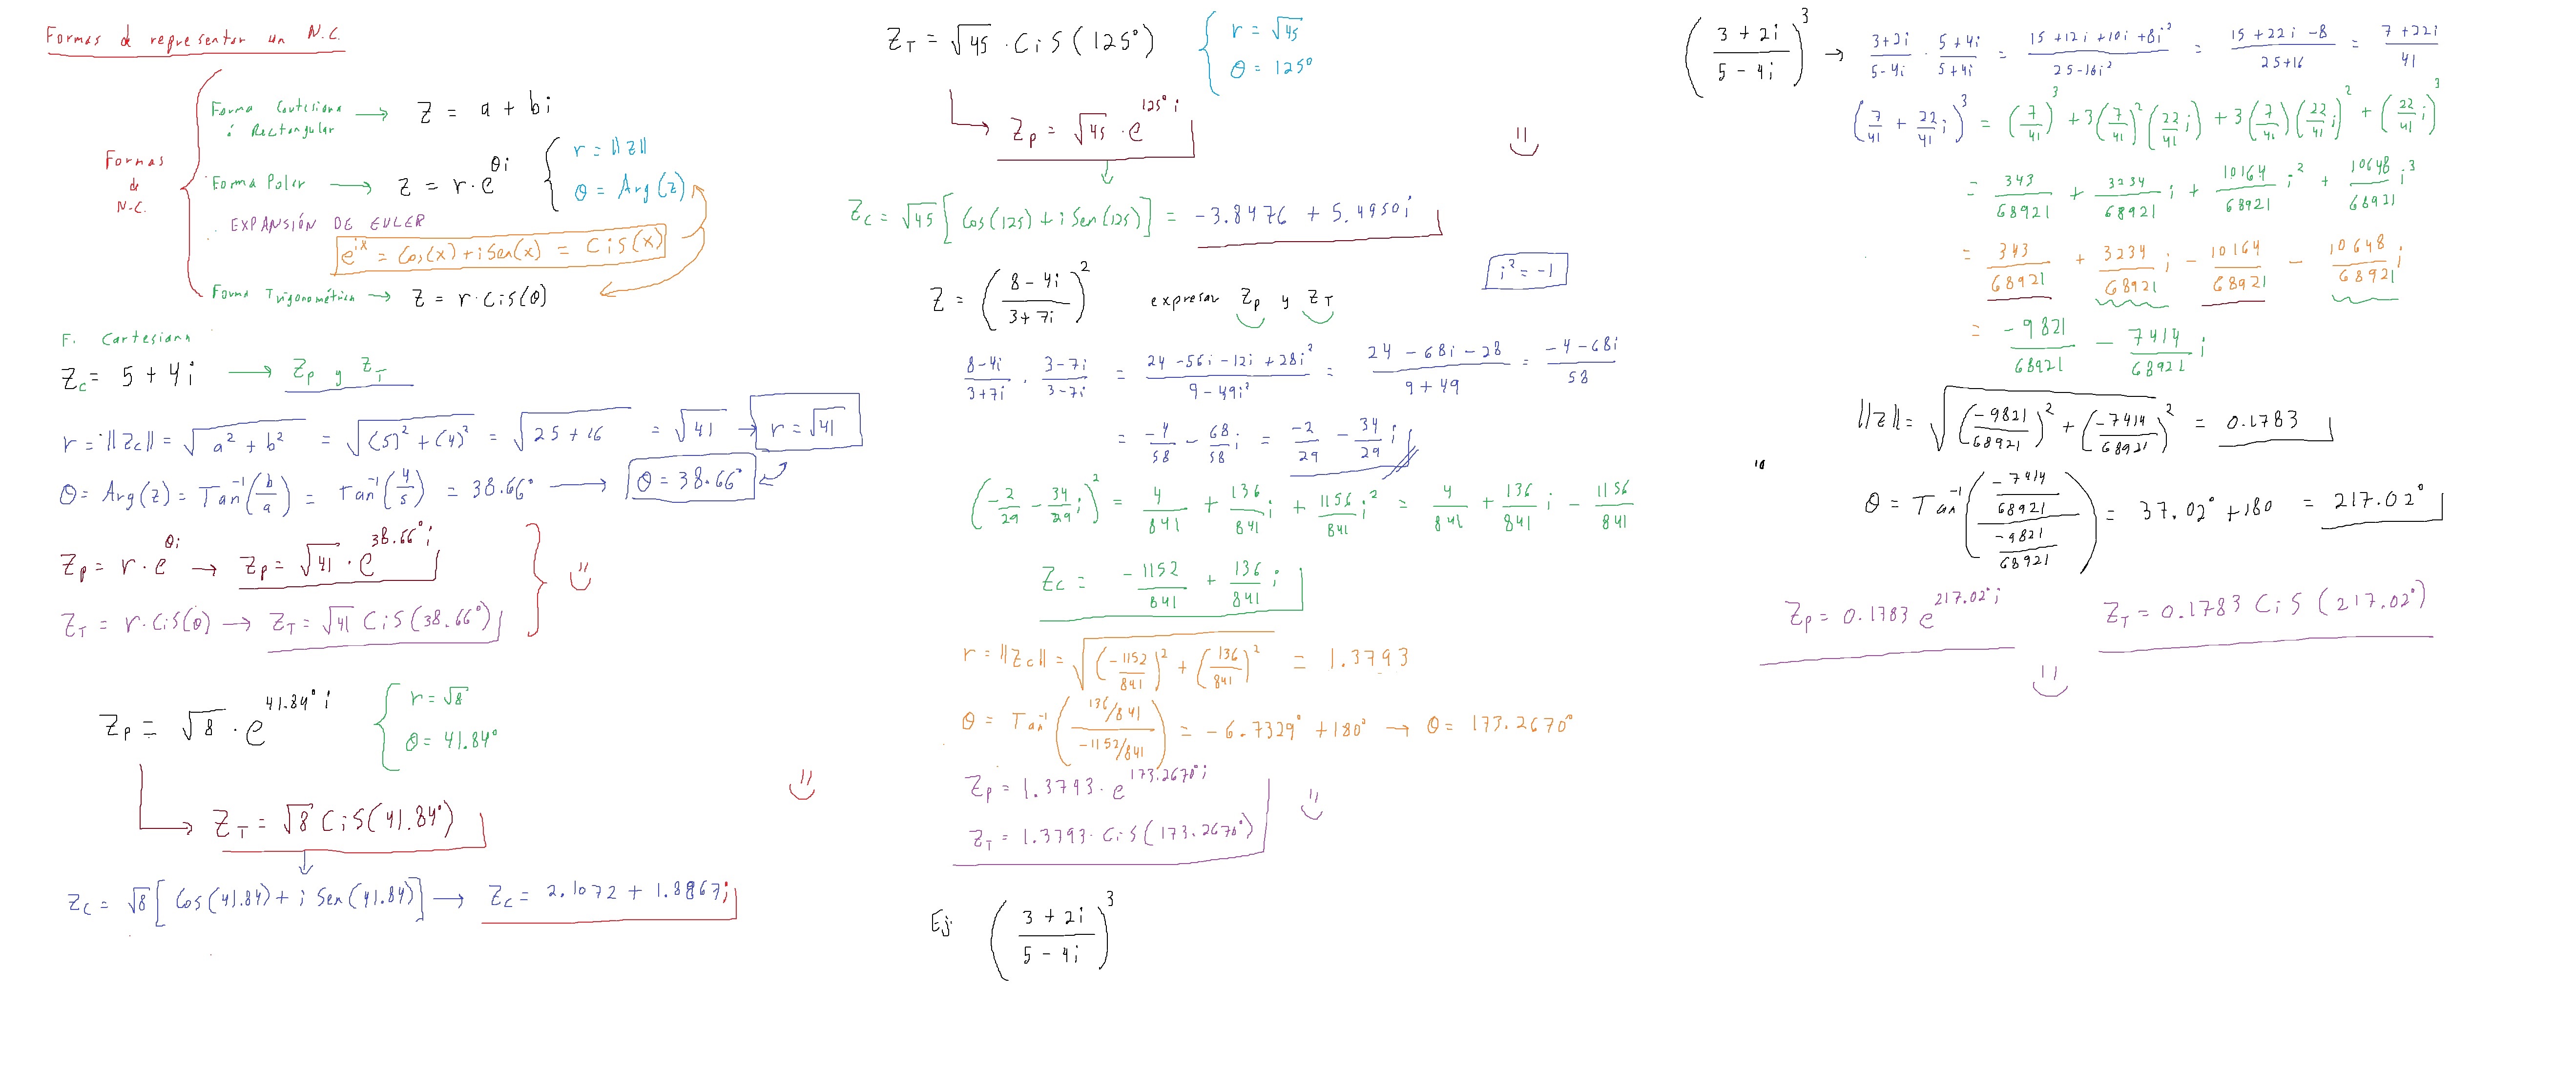 Formas de representar un N.C.
Formas de N.C.
Forma Cartesiana ó Rectangular → Z = a + bi
Forma Polar → Z = r·e^{θi} { r = ||Z||
θ = Arg(Z)
EXPANSIÓN DE EULER
e^{ix} = Cos(x) + i Sen(x) = CiS(x)
Forma Trigonométrica → Z = r·CiS(θ)
F. Cartesiana
Z_c = 5 + 4i → Z_p y Z_T
r = ||Z_c|| = √(a² + b²) = √((5)² + (4)²) = √(25 + 16) = √41 → r = √41
θ = Arg(z) = Tan⁻¹(b/a) = Tan⁻¹(4/5) = 38.66° → θ = 38.66°
Z_p = r·e^{θi} → Z_p = √41 · e^{38.66°i}
Z_T = r·CiS(θ) → Z_T = √41 CiS(38.66°)
Z_p = √8 · e^{41.84°i} { r = √8
θ = 41.84°
Z_T = √8 CiS(41.84°)
Z_c = √8 [Cos(41.84) + i Sen(41.84)] → Z_c = 2.1072 + 1.8867i
Z_T = √45 · CiS(125°) { r = √45
θ = 125°
Z_p = √45 · e^{125°i}
Z_c = √45 [Cos(125) + i Sen(125)] = -3.8476 + 5.4950i
i² = -1
Z = ((8 - 4i)/(3 + 7i))² expresar Z_p y Z_T
(8-4i)/(3+7i) · (3-7i)/(3-7i) = (24 - 56i - 12i + 28i²)/(9 - 49i²) = (24 - 68i - 28)/(9 + 49) = (-4 - 68i)/58
= -4/58 - 68/58 i = -2/29 - 34/29 i
(-2/29 - 34/29 i)² = 4/841 + 136/841 i + 1156/841 i² = 4/841 + 136/841 i - 1156/841
Z_c = -1152/841 + 136/841 i
r = ||Z_c|| = √((-1152/841)² + (136/841)²) = 1.3793
θ = Tan⁻¹((136/841)/(-1152/841)) = -6.7329° + 180° → θ = 173.2670°
Z_p = 1.3793 · e^{173.2670°i}
Z_T = 1.3793 · CiS(173.2670°)
Ej. ((3 + 2i)/(5 - 4i))³
((3 + 2i)/(5 - 4i))³ → (3+2i)/(5-4i) · (5+4i)/(5+4i) = (15 + 12i + 10i + 8i²)/(25 - 16i²) = (15 + 22i - 8)/(25 + 16) = (7 + 22i)/41
(7/41 + 22/41 i)³ = (7/41)³ + 3(7/41)²(22/41 i) + 3(7/41)(22/41 i)² + (22/41 i)³
= 343/68921 + 3234/68921 i + 10164/68921 i² + 10648/68921 i³
= 343/68921 + 3234/68921 i - 10164/68921 - 10648/68921 i
= -9821/68921 - 7414/68921 i
||Z|| = √((-9821/68921)² + (-7414/68921)²) = 0.1783
θ = Tan⁻¹((-7414/68921)/(-9821/68921)) = 37.02° + 180 = 217.02°
Z_p = 0.1783 e^{217.02°i} Z_T = 0.1783 CiS(217.02°)